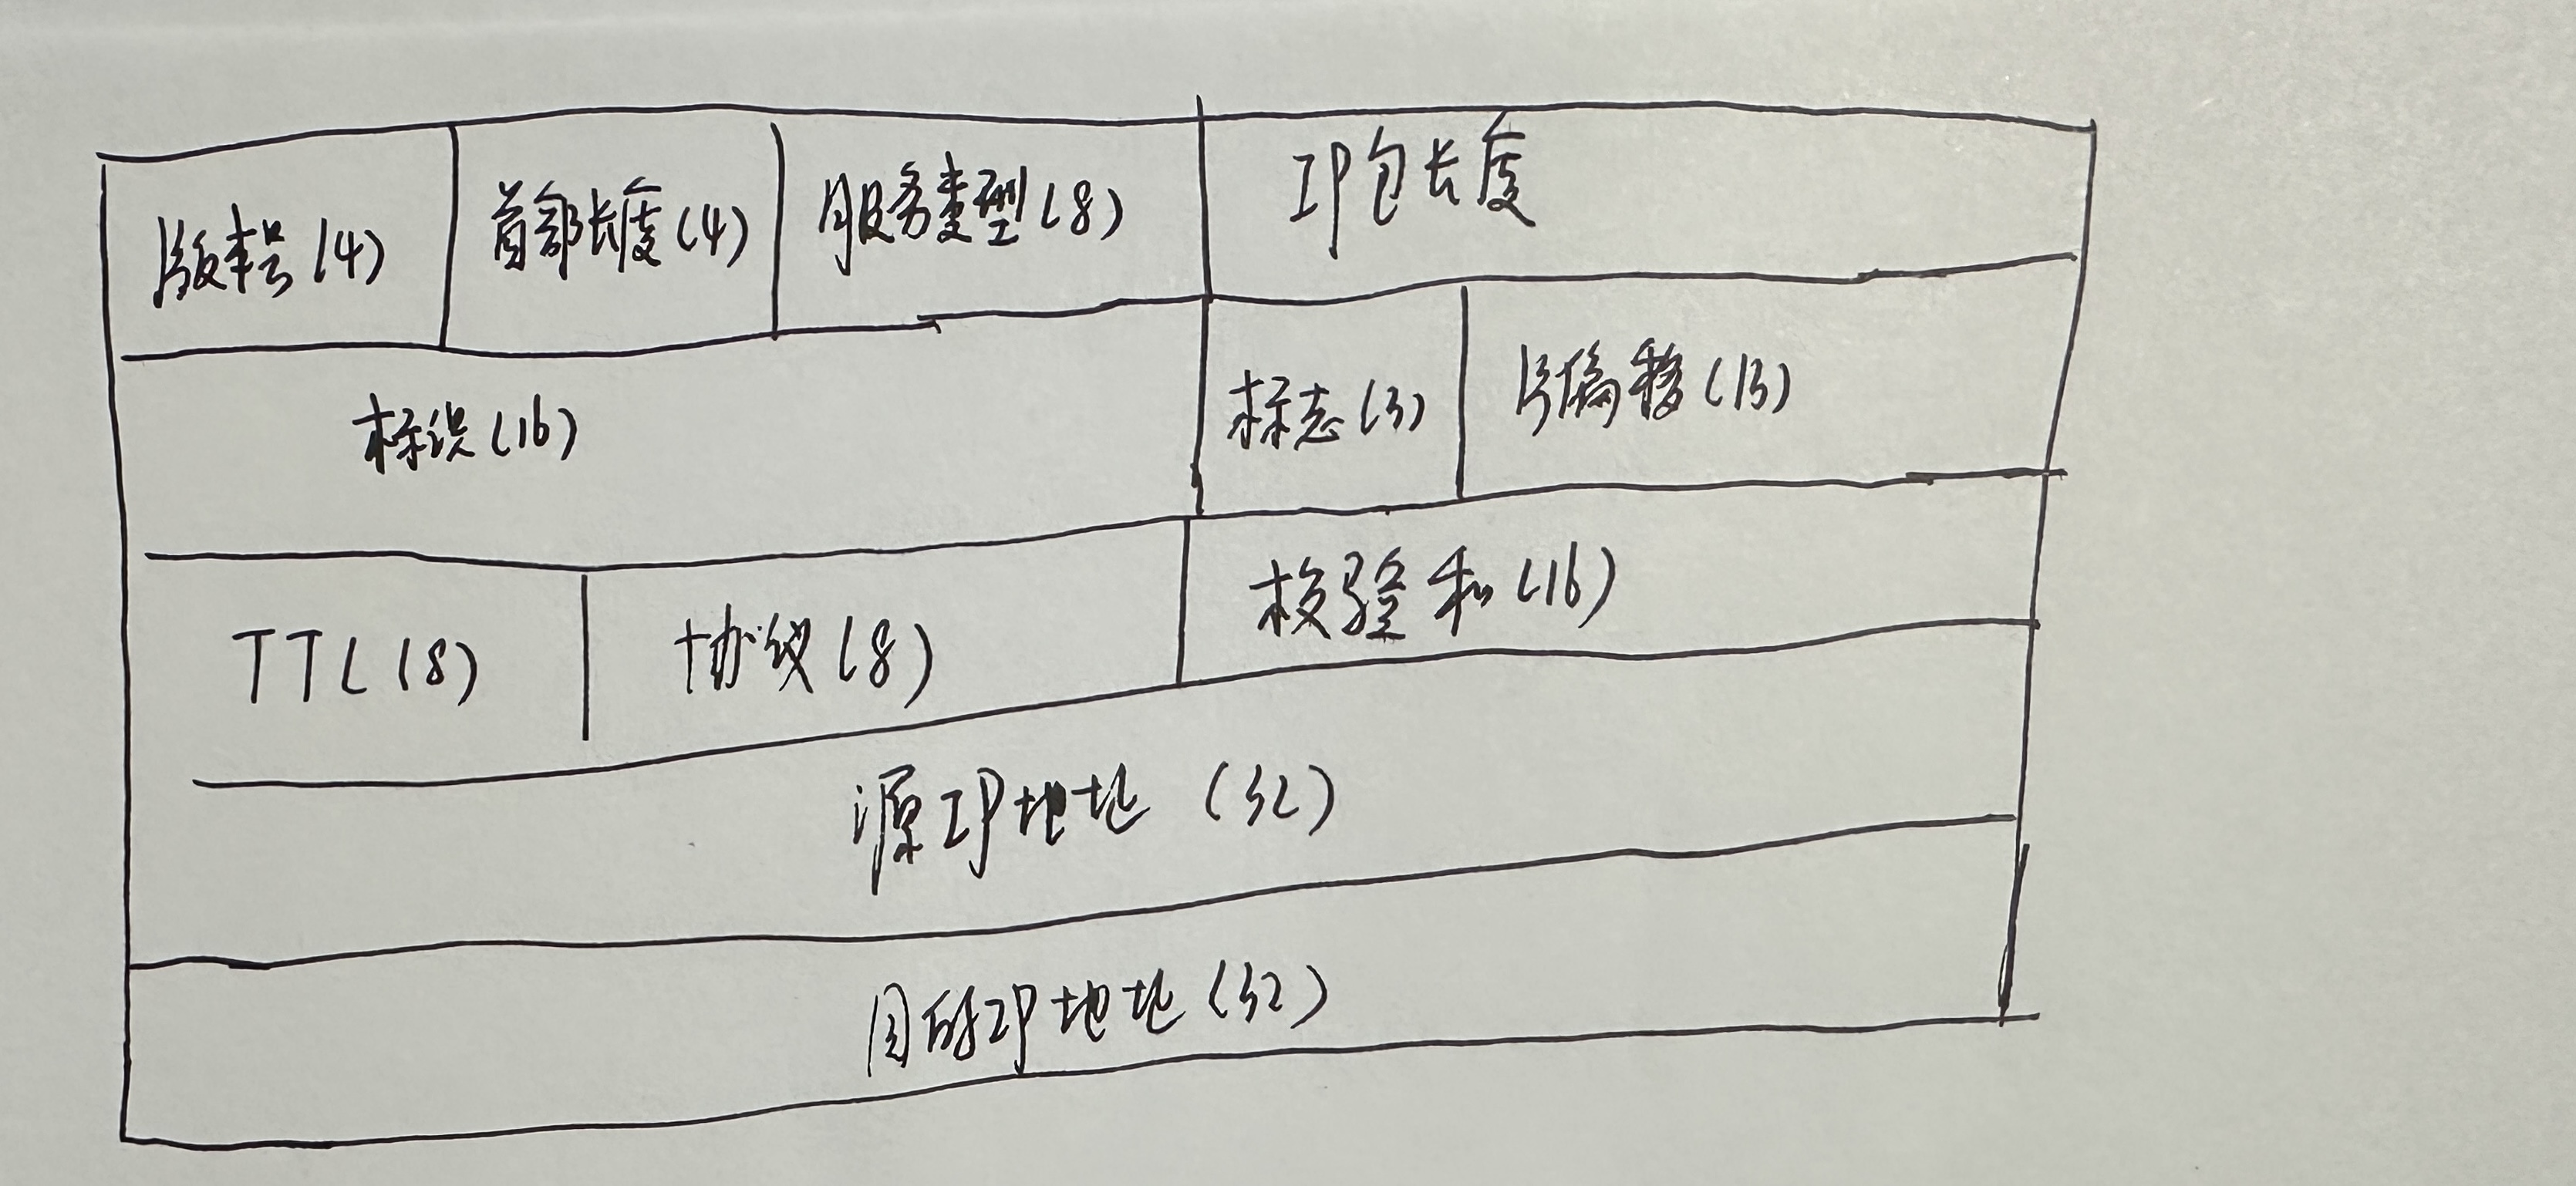 版本号(4) 首部长度(4) 服务类型(8) IP包长度
标识(16) 标志(3) 片偏移(13)
TTL(8) 协议(8) 校验和(16)
源IP地址(32)
目的IP地址(32)